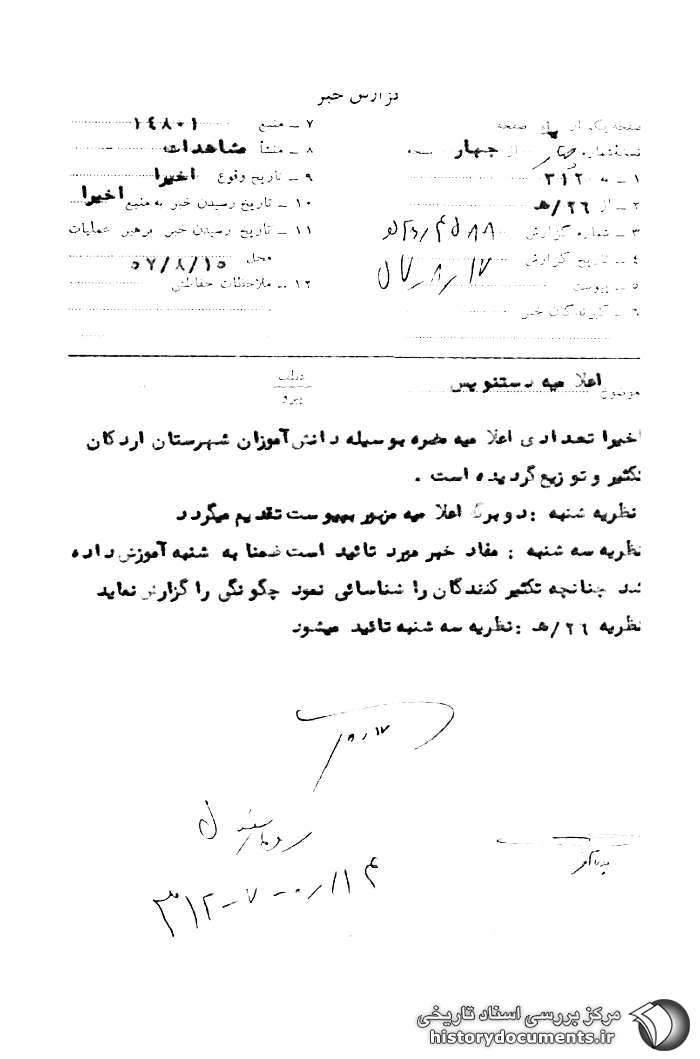 گزارش خبر
صفحه یک از یک صفحه
نسخه شماره چهار از چهار نسخه
۱ ـ به ۳۱۲
۲ ـ از ۲۶/ﻫ
۳ ـ شماره گزارش
۴ ـ تاریخ گزارش ۱۷-۸-۵۷
۵ ـ پیوست
۶ ـ گیرندگان خبر
۷ ـ منبع ۱۴۸۰۱
۸ ـ منشأ مشاهدات
۹ ـ تاریخ وقوع اخیرا
۱۰ ـ تاریخ رسیدن خبر به منبع اخیرا
۱۱ ـ تاریخ رسیدن خبر برهبر عملیات
محل ۵۷/۸/۱۵
۱۲ ـ ملاحظات حفاظتی
موضوع اعلامیه دستنویس
اخیرا تعدادی اعلامیه مضره بوسیله دانش‌آموزان شهرستان اردکان
تکثیر و توزیع گردیده است .
نظریه شنبه : دو برگ اعلامیه مزبور بپیوست تقدیم میگردد
نظریه سه شنبه : مفاد خبر مورد تائید است ضمنا به شنبه آموزش داده
شد چنانچه تکثیر کنندگان را شناسائی نمود چگونگی را گزارش نماید
نظریه ۲۶/ﻫ : نظریه سه شنبه تائید میشود
۱۷/۸
۳۱۲-۷-۰/۱۱۴
مرکز بررسی اسناد تاریخی
historydocuments.ir